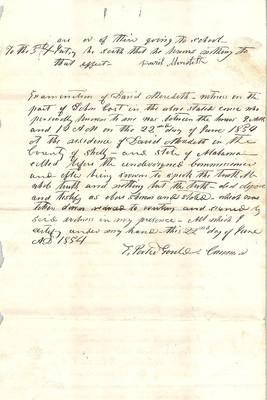 are or of their going to school
To the 3rd X Intty he saith that he knows nothing to
that effect David Meredith
Examination of David Meredith witness on the
part of John Cost in the above stated cause who
personally known to me was between the hours 9 AM
and 10 A M on the 22nd day of June 1854
at the residence of David Meredith in the
County of Shelby and state of Alabama
called before the undersigned Commissioner
and after being sworn to speak the truth the
whole truth and nothing but the truth did depose
and testify as above and stated which
was reduced to writing and signed by
said witness in my presence - All which I
certify under my hand this 22nd day of June
AD 1854
F. Porter Gould Commr